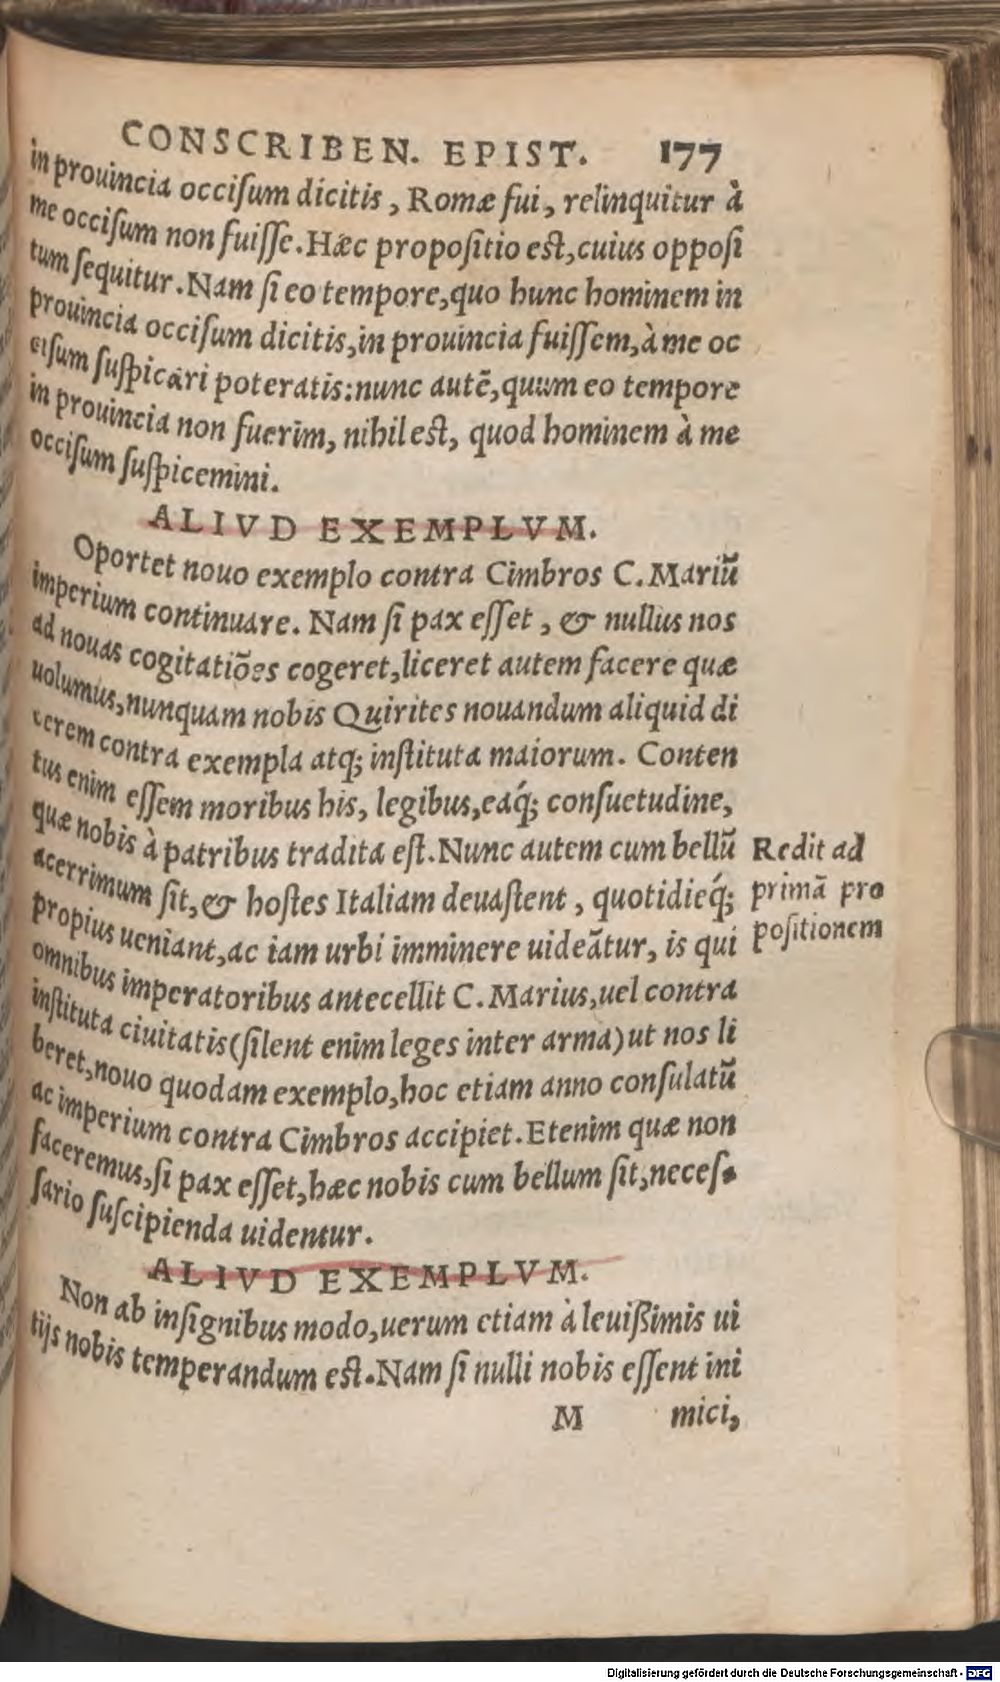 CONSCRIBEN. EPIST. 177
in prouincia occiſum dicitis, Romæ fui, relinquitur à
me occiſum non fuiſſe. Hæc propoſitio eſt, cuius oppoſi
tum ſequitur. Nam ſi eo tempore, quo hunc hominem in
prouincia occiſum dicitis, in prouincia fuiſſem, à me oc
ciſum ſuſpicari poteratis: nunc autē, quum eo tempore
in prouincia non fuerim, nihil eſt, quod hominem à me
occiſum ſuſpicemini.
ALIVD EXEMPLVM.
Oportet nouo exemplo contra Cimbros C. Mariū
imperium continuare. Nam ſi pax eſſet, & nullus nos
ad nouas cogitatiōes cogeret, liceret autem facere quæ
uolumus, nunquam nobis Quirites nouandum aliquid di
cerem contra exempla atq; inſtituta maiorum. Conten
tus enim eſſem moribus his, legibus, eáq; conſuetudine,
quæ nobis à patribus tradita eſt. Nunc autem cum bellū
acerrimum ſit, & hoſtes Italiam deuaſtent, quotidieq́;
propius ueniant, ac iam urbi imminere uideātur, is qui
omnibus imperatoribus antecellit C. Marius, uel contra
inſtituta ciuitatis (ſilent enim leges inter arma) ut nos li
beret, nouo quodam exemplo, hoc etiam anno conſulatū
ac imperium contra Cimbros accipiet. Etenim quæ non
faceremus, ſi pax eſſet, hæc nobis cum bellum ſit, neceſ-
ſario ſuſcipienda uidentur.
Redit ad
primā pro
poſitionem
ALIVD EXEMPLVM.
Non ab inſignibus modo, uerum etiam à leuiſsimis ui
tijs nobis temperandum eſt. Nam ſi nulli nobis eſſent ini
M mici,
Digitalisierung gefördert durch die Deutsche Forschungsgemeinschaft - DFG